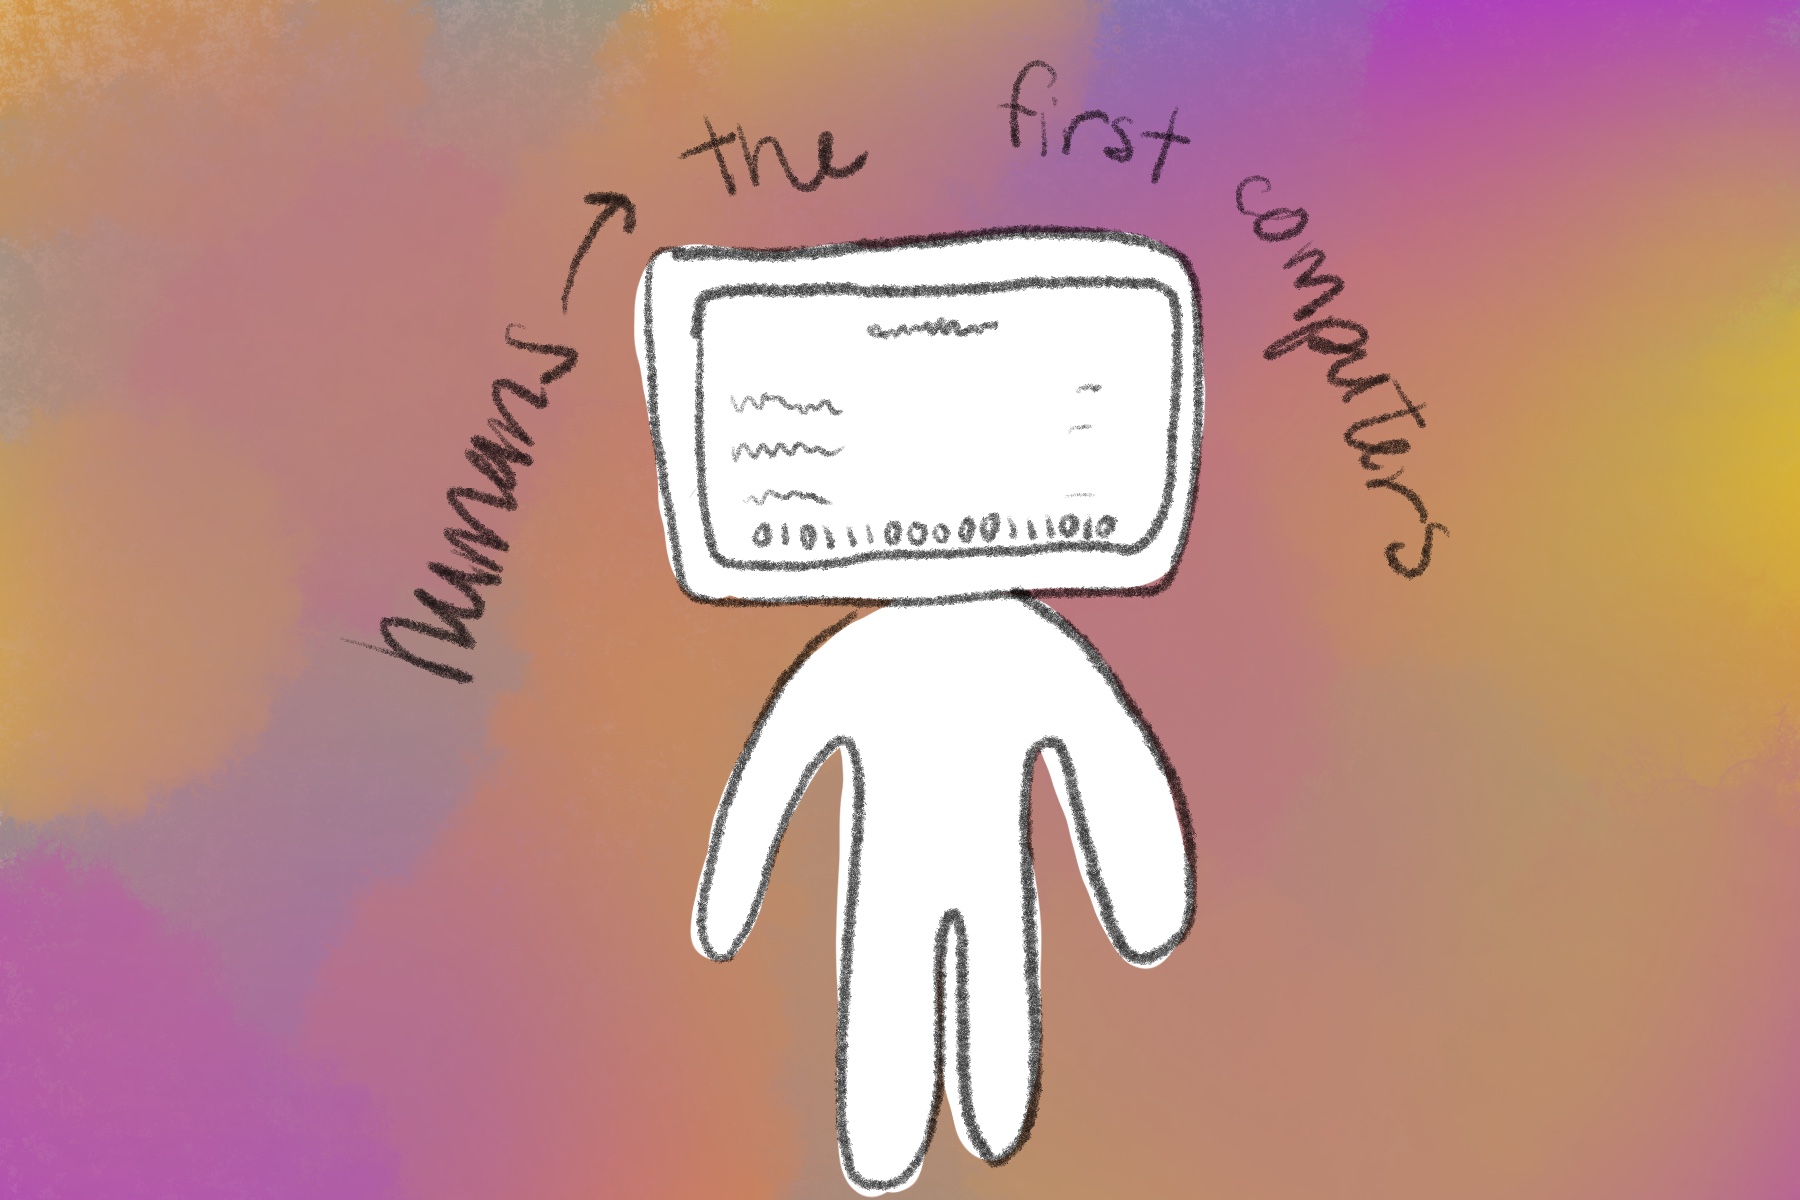 humans → the first computers
01011100000111010